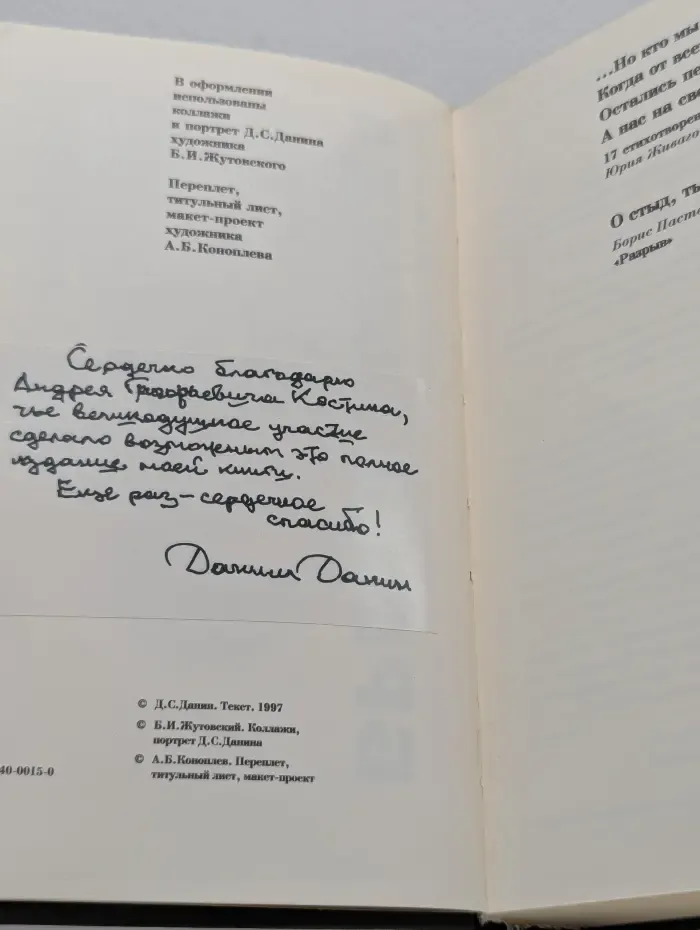 В оформлении
использованы
коллажи
и портрет Д.С.Данина
художника
Б.И.Жутовского
Переплет,
титульный лист,
макет-проект
художника
А.Б.Коноплева
Сердечно благодарю
Андрея Григорьевича Костина,
чье великодушное участие
сделало возможным это полное
издание моей книги.
Еще раз – сердечное
спасибо!
Даниил Данин
© Д.С.Данин. Текст. 1997
© Б.И.Жутовский. Коллажи,
портрет Д.С.Данина
© А.Б.Коноплев. Переплет,
титульный лист, макет-проект
40-0015-0
...Но кто мы
Когда от все
Остались пе
А нас на све
17 стихотворен
Юрия Живаго
О стыд, ть
Борис Пасте
«Разрыв»